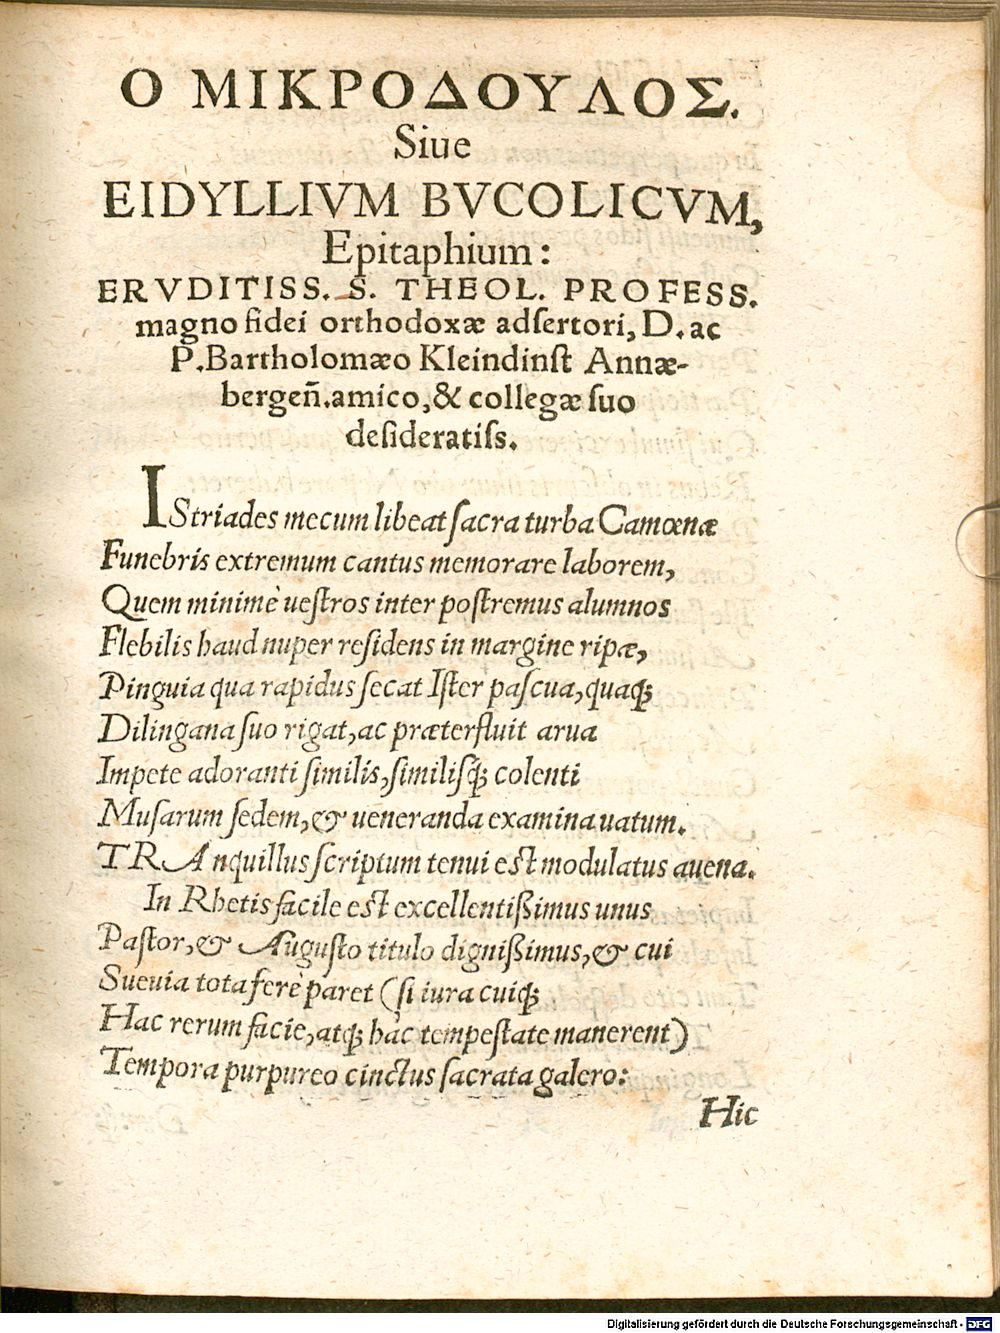 Ο ΜΙΚΡΟΔΟΥΛΟΣ.
Siue
EIDYLLIVM BVCOLICVM,
Epitaphium:
ERVDITISS. S. THEOL. PROFESS.
magno fidei orthodoxæ adſertori, D. ac
P. Bartholomæo Kleindinſt Annæ-
bergeñ. amico, & collegæ ſuo
deſideratiſs.
IStriades mecum libeat ſacra turba Camœnæ
Funebris extremum cantus memorare laborem,
Quem minimè ueſtros inter poſtremus alumnos
Flebilis haud nuper reſidens in margine ripæ,
Pinguia qua rapidus ſecat Iſter paſcua, quaq́;
Dilingana ſuo rigat, ac præterfluit arua
Impete adoranti ſimilis, ſimilisq́; colenti
Muſarum ſedem, & ueneranda examina uatum.
TRAnquillus ſcriptum tenui eſt modulatus auena.
In Rhetis facile eſt excellentißimus unus
Paſtor, & Auguſto titulo dignißimus, & cui
Sueuia tota ferè paret (ſi iura cuiq́;
Hac rerum facie, atq́; hàc tempeſtate manerent)
Tempora purpureo cinctus ſacrata galero:
Hic
Digitalisierung gefördert durch die Deutsche Forschungsgemeinschaft - DFG